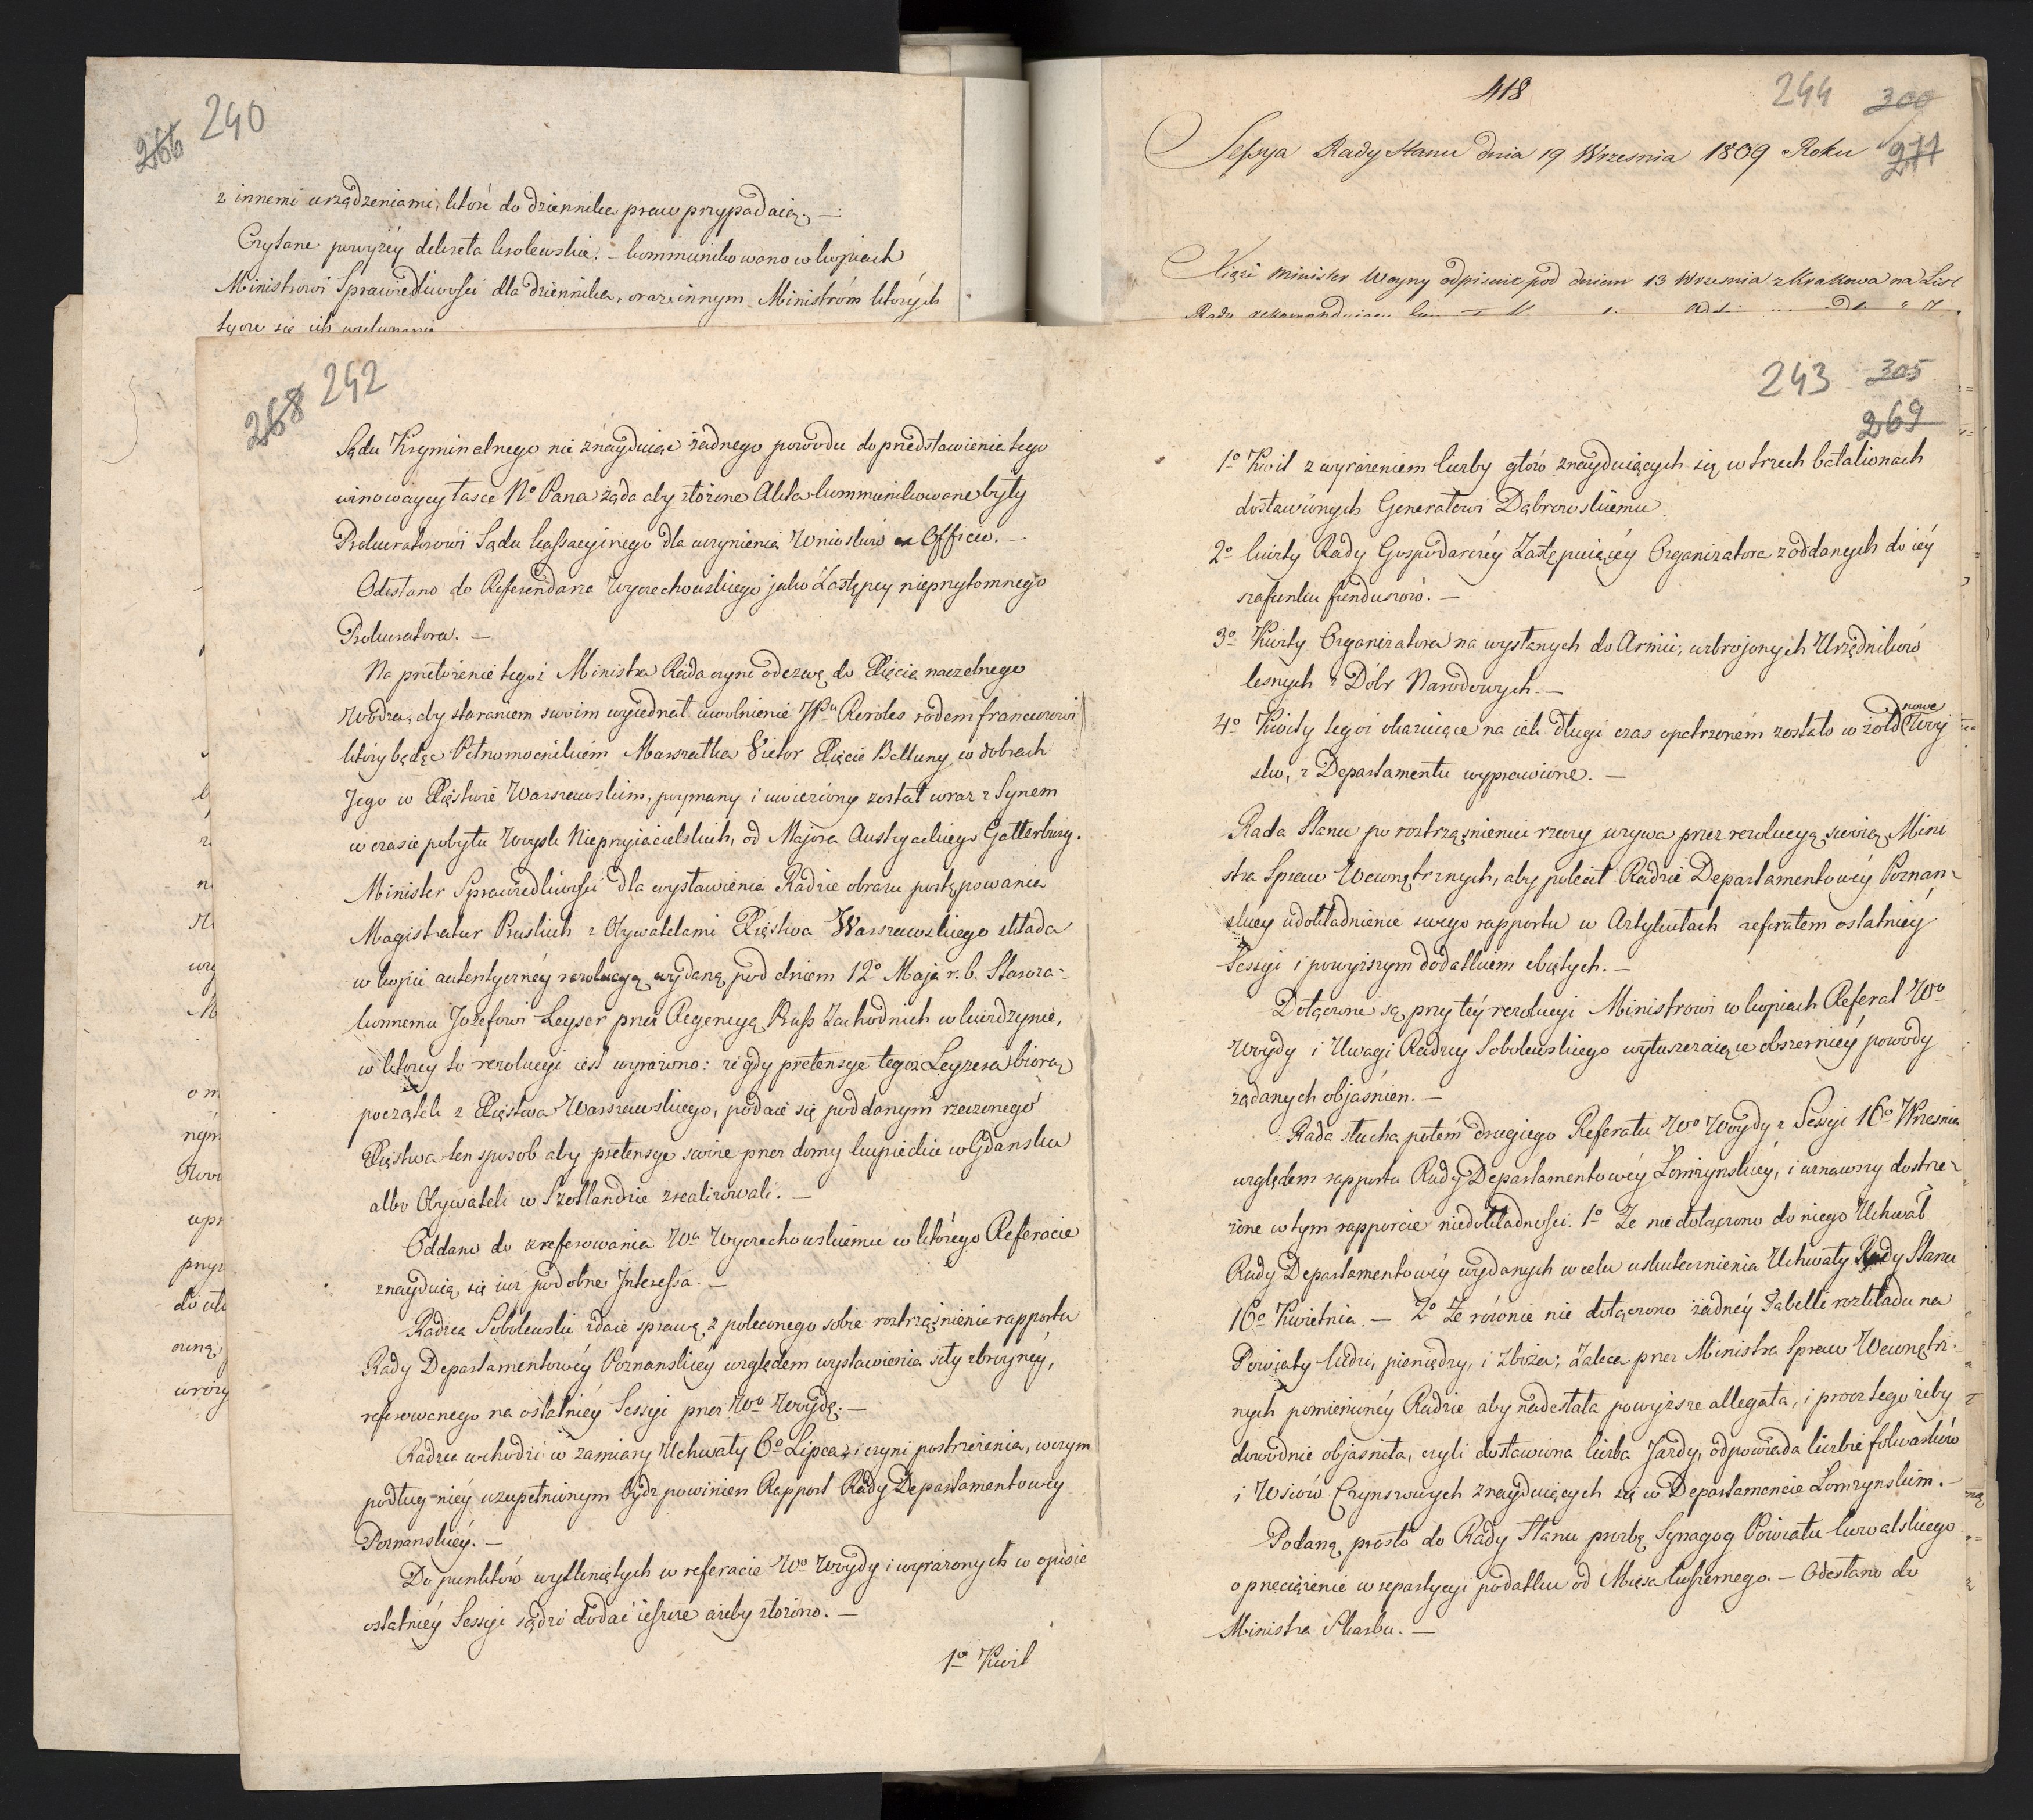 240
266
z innemi urządzeniami, które do dziennika praw przypadaią. —
Czytane powyżey dekreta krolewskie. – kommunikowano w kopiach
Ministrowi Sprawiedliwości dla dziennika, oraz innym Ministróm których
tycze się ich wykonanie
418
244
300
277
Sessya Rady Stanu dnia 19 Wrzesnia 1809 Roku
Xiąże Minister Woyny odpisuie pod dniem 13 Wrzesnia z Krakowa na List
Rady
242
268
Sądu Kryminalnego nie znayduiąc żadnego powodu do przedstawienia tego
winowaycy łasce No Pana żąda aby złożone Akta kommunikowane były
Prokuratorowi Sądu Kassacyinego dla uczynienia Wniosków ex Officio. —
Odesłano do Referendarza Wyczechowskiego jako Zastępcy nieprzytomnego
Prokuratora. —
Na przełożenie tegoż Ministra Rada czyni odezwę do Xięcia naczelnego
Wodza, aby staraniem swoim wyiednał uwolnienie JPu Reroles rodem francuzowi
który będąc Pełnomocnikiem Marszałka Victor Xięcia Belluny w dobrach
Jego w Xięstwie Warszawskim, poymany i uwieziony został wraz z Synem
w czasie pobytu Woysk Nieprzyiacielskich, od Majora Austryackiego Gatterburg.
Minister Sprawiedliwości dla wystawienia Radzie obrazu postępowania
Magistratur Pruskich z Obywatelami Xięstwa Warszawskiego składa
w kopii autentyczney rezolucyą wydaną pod dniem 12o Maja r. b. Staroza-
konnemu Jozefowi Leyser przez Regencyą Pruss Zachodnich w kwidzynie,
w którey to rezolucyi iest wyrażono: że gdy pretensye tegoż Leyzera biorą
początek z Xięstwa Warszawskiego, podaie się poddanym rzeczonego
Xięstwa ten sposob aby pretensye swoie przez domy kupieckie w Gdansku
albo Obywateli w Szotlandzie zrealizowali. —
Oddano do zreferowania Wu Wyczechowskiemu w którego Referacie
znayduią się iuż podobne Interessa. —
Radzca Sobolewski zdaie sprawę z poleconego sobie roztrząśnienia rapportu
Rady Departamentowéy Poznanskiéy względem wystawienia siły zbroyney,
referowanego na ostatniéy Sessyi przez Wo Woydę. —
Radzca wchodzi w zamiary Uchwały 6o Lipca, i czyni postrzeżenia, w czym
podług niéy uzupełnionym bydz powinien Rapport Rady Departamentowey
Poznanskiéy. —
Do punktów wytkniętych w referacie Wo Woydy i wyrażonych w opisie
ostatniéy Sessyi sądzi dodać ieszcze ażeby złożono. —
1o Kwit
243
305
269
1o Kwit z wyrażeniem liczby głów znayduiących się w trzech batalionach
dostawionych Generałowi Dąbrowskiemu.
2o kwity Rady Gospodarczéy Zastępuiącéy Organizatora z oddanych do iéy
szafunku funduszów. —
3o Kwity Organizatora na wysłanych do Armii, uzbrojonych Urzędników
lesnych z Dóbr Narodowych. —
4o Kwity tegoż okazuiące na iak długi czas opatrzoném zostało w żołd nowe
stwo, z Departamentu wyprawione. —
Rada Stanu po roztrząśnieniu rzeczy wzywa przez rezolucyą swoią, Mini
stra Spraw Wewnętrznych, aby polecił Radzie Departamentowéy Poznan-
skiey udokładnienie swego rapportu w Artykułach referatem ostatniéy
Sessyi i powyższym dodatkiem obiętych. —
Dołączone są przy téy rezolucyi Ministrowi w kopiach Referat Wo
Woydy i Uwagi Radzcy Sobolewskiego wyłuszczaiące obszerniéy powody
żądanych objaśnien. —
Rada słucha potém drugiego Referatu Wo Woydy z Sessyi 16o Wrzesnia
względem rapportu Rady Departamentowéy Łomżynskiéy, i uznawszy dostrze-
żone w tym rapporcie niedokładności. 1o Że nie dołączono do niego Uchwał
Rady Departamentowéy wydanych w celu uskutecznienia Uchwały Rady Stanu
16o Kwietnia. — 2o Że rownie nie dołączono żadnéy Tabelli rozkładu na
Powiaty ludzi, pieniędzy, i zboża; Zaleca przez Ministra Spraw Wewnętrz-
nych pomienionéy Radzie aby nadesłała powyższe allegata, i procz tego żeby
dowodnie objasniła, czyli dostawiona liczba Jazdy, odpowiada liczbie folwarków
i Wsiów Czynszowych znayduiących się w Departamencie Łomżynskim. —
Podaną prosto do Rady Stanu prozbę Synagog Powiatu kowalskiego
o przeciążenie w repartycyi podatku od Mięsa koszernego. — Odesłano do
Ministra Skarbu. —